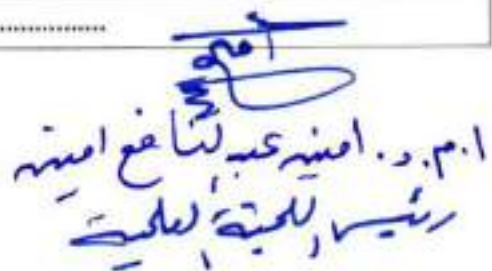 ...................
ا.م.د. امين عبد النافع امين
رئيس اللجنة العلمية